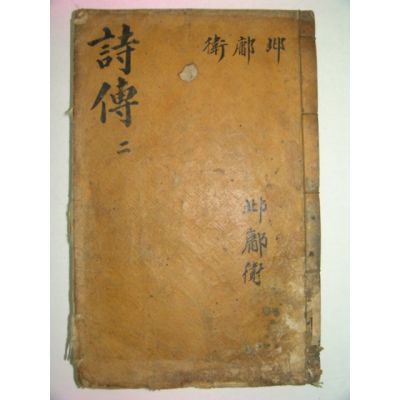 詩傳 二
邶鄘衛
邶鄘衛